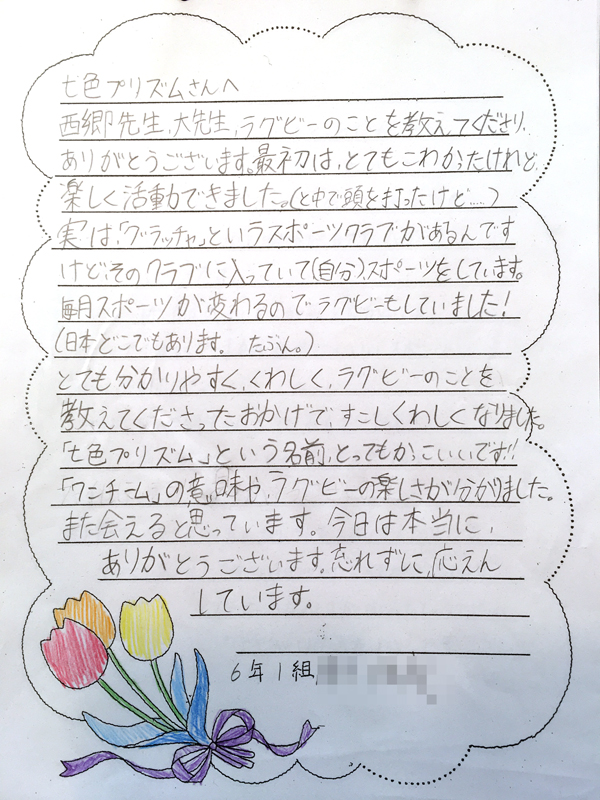 七色プリズムさんへ
西郷先生、大先生、ラグビーのことを教えてくださり、
ありがとうございます。最初は、とてもこわかったけれど
楽しく活動できました。(と中で頭を打ったけど……)
実は、「グラッチャ」というスポーツクラブがあるんです
けど、そのクラブに入っていて(自分)、スポーツをしています。
毎月スポーツが変わるのでラグビーもしていました!
(日本どこでもあります。 たぶん。)
とても分かりやすく、くわしく、ラグビーのことを
教えてくださったおかげで、すこしくわしくなりました。
「七色プリズム」という名前、とってもかっこいいです!!
「ワンチーム」の意味や、ラグビーの楽しさが分がりました。
また会えると思っています。今日は本当に、
ありがとうございます。忘れずに、応えん
しています。
6年1組